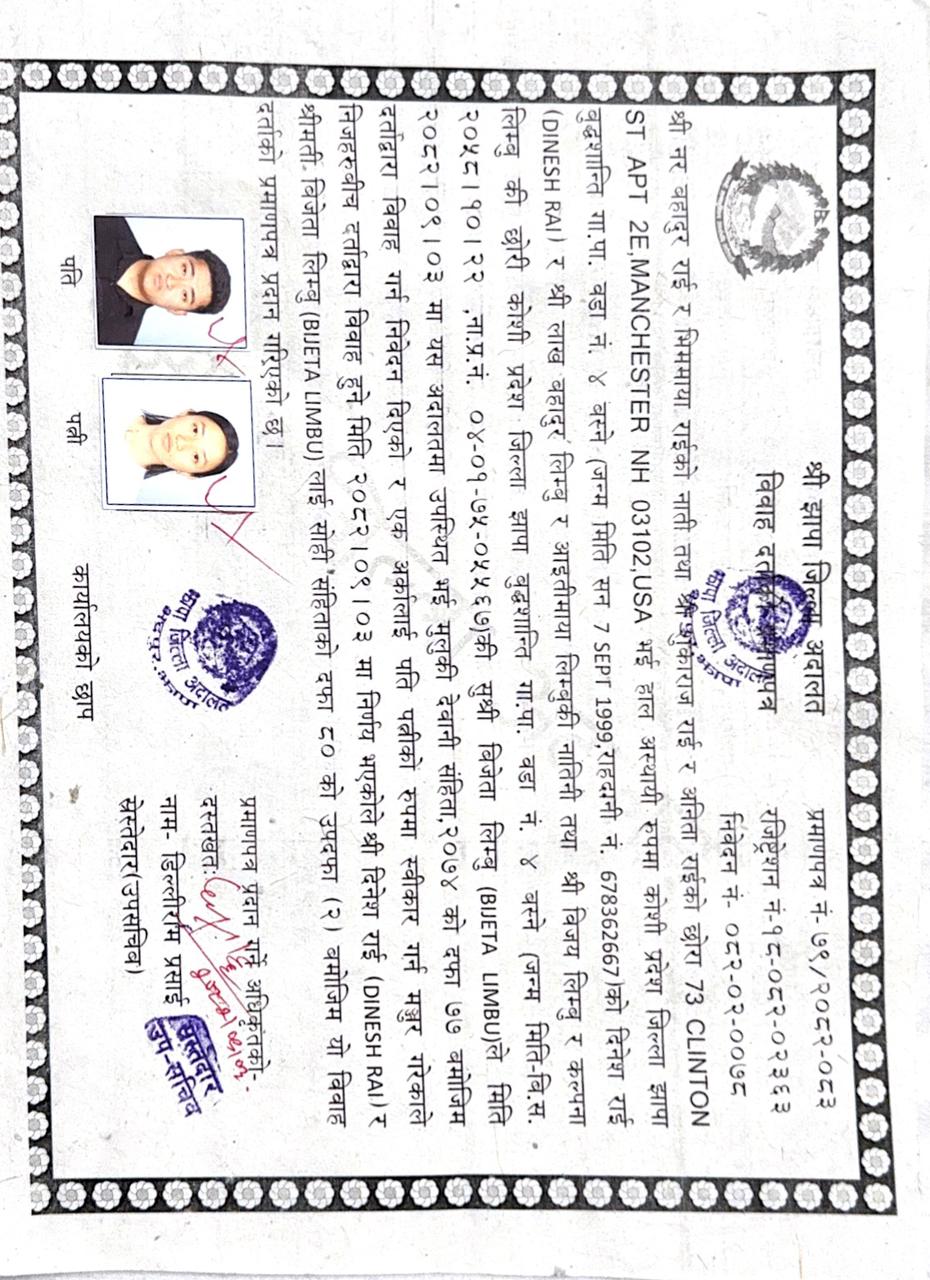 श्री झापा जिल्ला अदालत
विवाह दर्ताको प्रमाणपत्र
प्रमाणपत्र नं. ५९/२०८२-०८३
रजिष्ट्रेशन नं.१८-०८२-०२३६३
निवेदन नं. ०८२-०२-००७८
झापा जिल्ला अदालत
श्री नर बहादुर राई र भिममाया राईको नाती तथा श्री शुकराज राई र अनिता राईको छोरा 73 CLINTON
ST APT 2E,MANCHESTER NH 03102,USA भई हाल अस्थायी रुपमा कोशी प्रदेश जिल्ला झापा
बुद्धशान्ति गा.पा. वडा नं. ४ बस्ने (जन्म मिति सन 7 SEPT 1999,राहदानी नं. 678362667)को दिनेश राई
(DINESH RAI) र श्री लाख बहादुर लिम्बु र आइतीमाया लिम्बुकी नातिनी तथा श्री विजय लिम्बु र कल्पना
लिम्बु की छोरी कोशी प्रदेश जिल्ला झापा बुद्धशान्ति गा.पा. वडा नं. ४ बस्ने (जन्म मिति-वि.स.
२०५८।१०।२२ ,ना.प्र.नं. ०४-०१-७५-०५५६७)की सुश्री विजेता लिम्बु (BIJETA LIMBU)ले मिति
२०८२।०९।०३ मा यस अदालतमा उपस्थित भई मुलुकी देवानी संहिता,२०७४ को दफा ७७ बमोजिम
दर्ताद्वारा विवाह गर्न निवेदन दिएको र एक अर्कालाई पति पत्नीको रुपमा स्वीकार गर्न मञ्जुर गरेकाले
निजहरुबीच दर्ताद्वारा विवाह हुने मिति २०८२।०९।०३ मा निर्णय भएकोले श्री दिनेश राई (DINESH RAI) र
श्रीमती विजेता लिम्बु (BIJETA LIMBU) लाई सोही संहिताको दफा ८० को उपदफा (२) बमोजिम यो विवाह
दर्ताको प्रमाणपत्र प्रदान गरिएको छ।
पति
पत्नी
झापा जिल्ला अदालत
कार्यालयको छाप
प्रमाणपत्र प्रदान गर्ने अधिकृतको-
दस्तखतः
नाम- डिल्लीराम प्रसाई
स्रेस्तेदार(उपसचिव)
स्रेस्तेदार
उप-सचिव